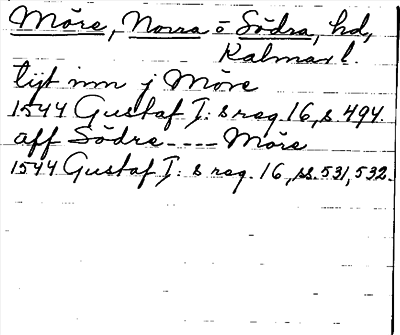 Möre, Norra o Södra, hd,
Kalmar l.
tijt inn j Möre
1544 Gustaf I: s reg. 16, s. 494.
aff Södre ---- Möre
1544 Gustaf I: s reg. 16, ss. 531, 532.